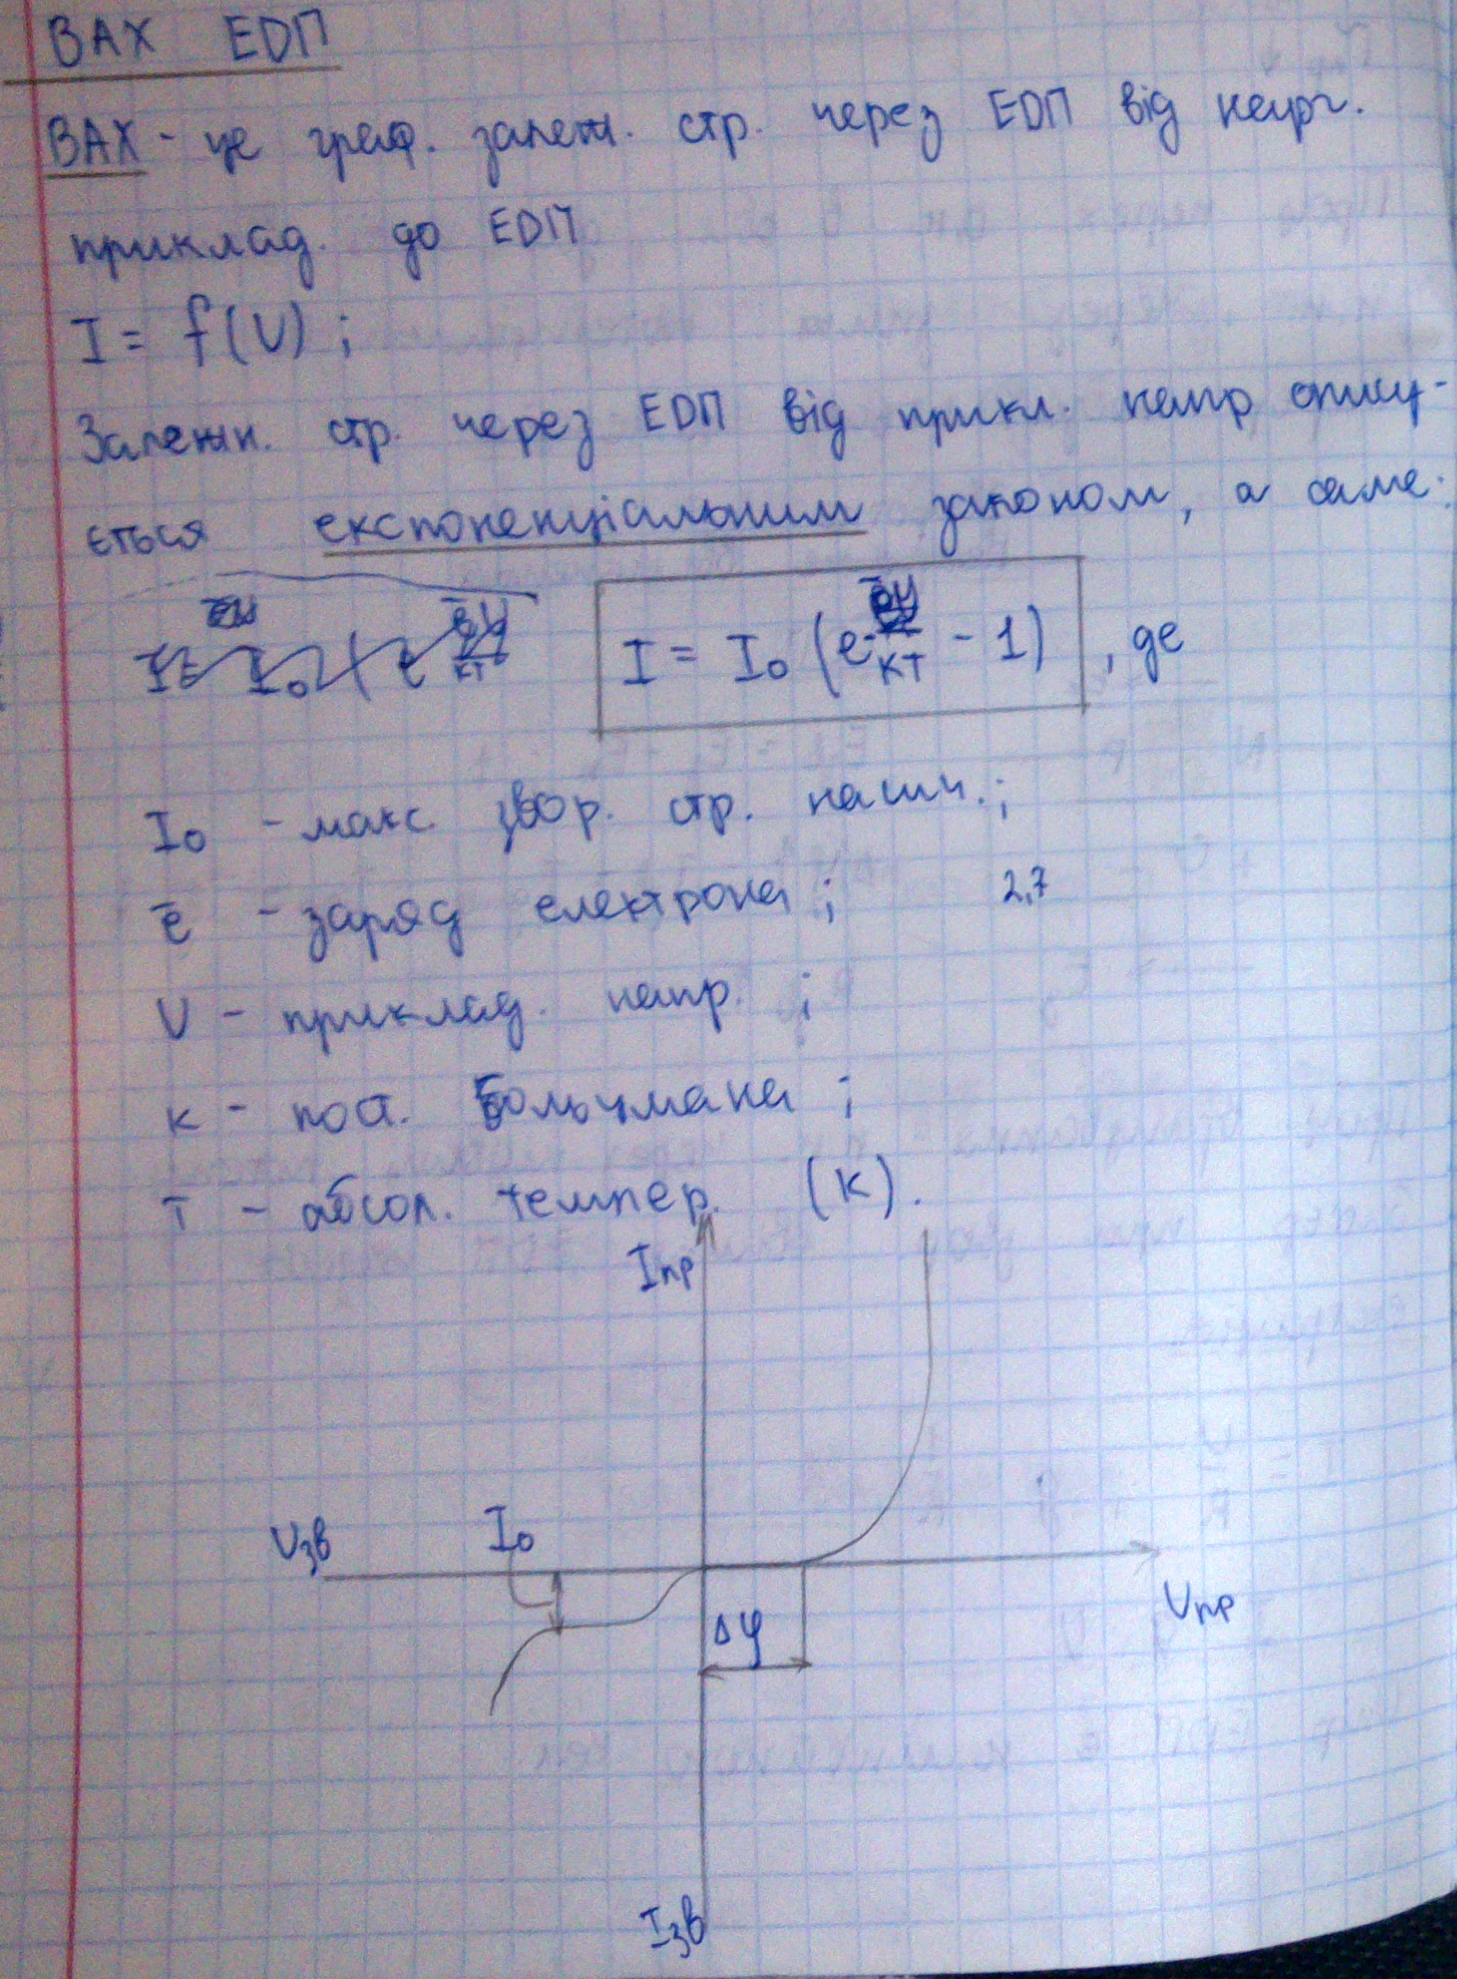 ВАХ ЕDП
ВАХ - це граф. залеж. стр. через ЕDП від напр.
приклад. до ЕDП
I = f(U) ;
Залежн. стр. через ЕDП від прикл. напр опису-
ється експоненціальним законом, а саме:
I = I₀ (e КТ - 1) , де
I₀ - макс. звор. стр. насич. ;
ē - заряд електрона ; 2,7
U - приклад. напр. ;
к - пост. Больцмана ;
Т - абсол. темпер. (К) .
Iпр
Uзв I₀
Uпр
Δφ
Iзв